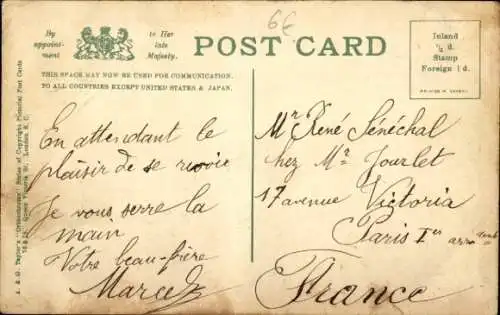 6€
By
appoint-
ment
To Her
late
Majesty.
POST CARD
Inland
½ d.
Stamp
Foreign 1d.
THIS SPACE MAY NOW BE USED FOR COMMUNICATION
TO ALL COUNTRIES EXCEPT UNITED STATES & JAPAN.
En attendant le
plaisir de se revoir
Je vous serre la
main
Votre beau-frère
Marcel
Mr René Sénéchal
chez Mr Jourlet
17 avenue Victoria
Paris Ier
France
Series of Copyright Pictorial Post Cards
London E.C.